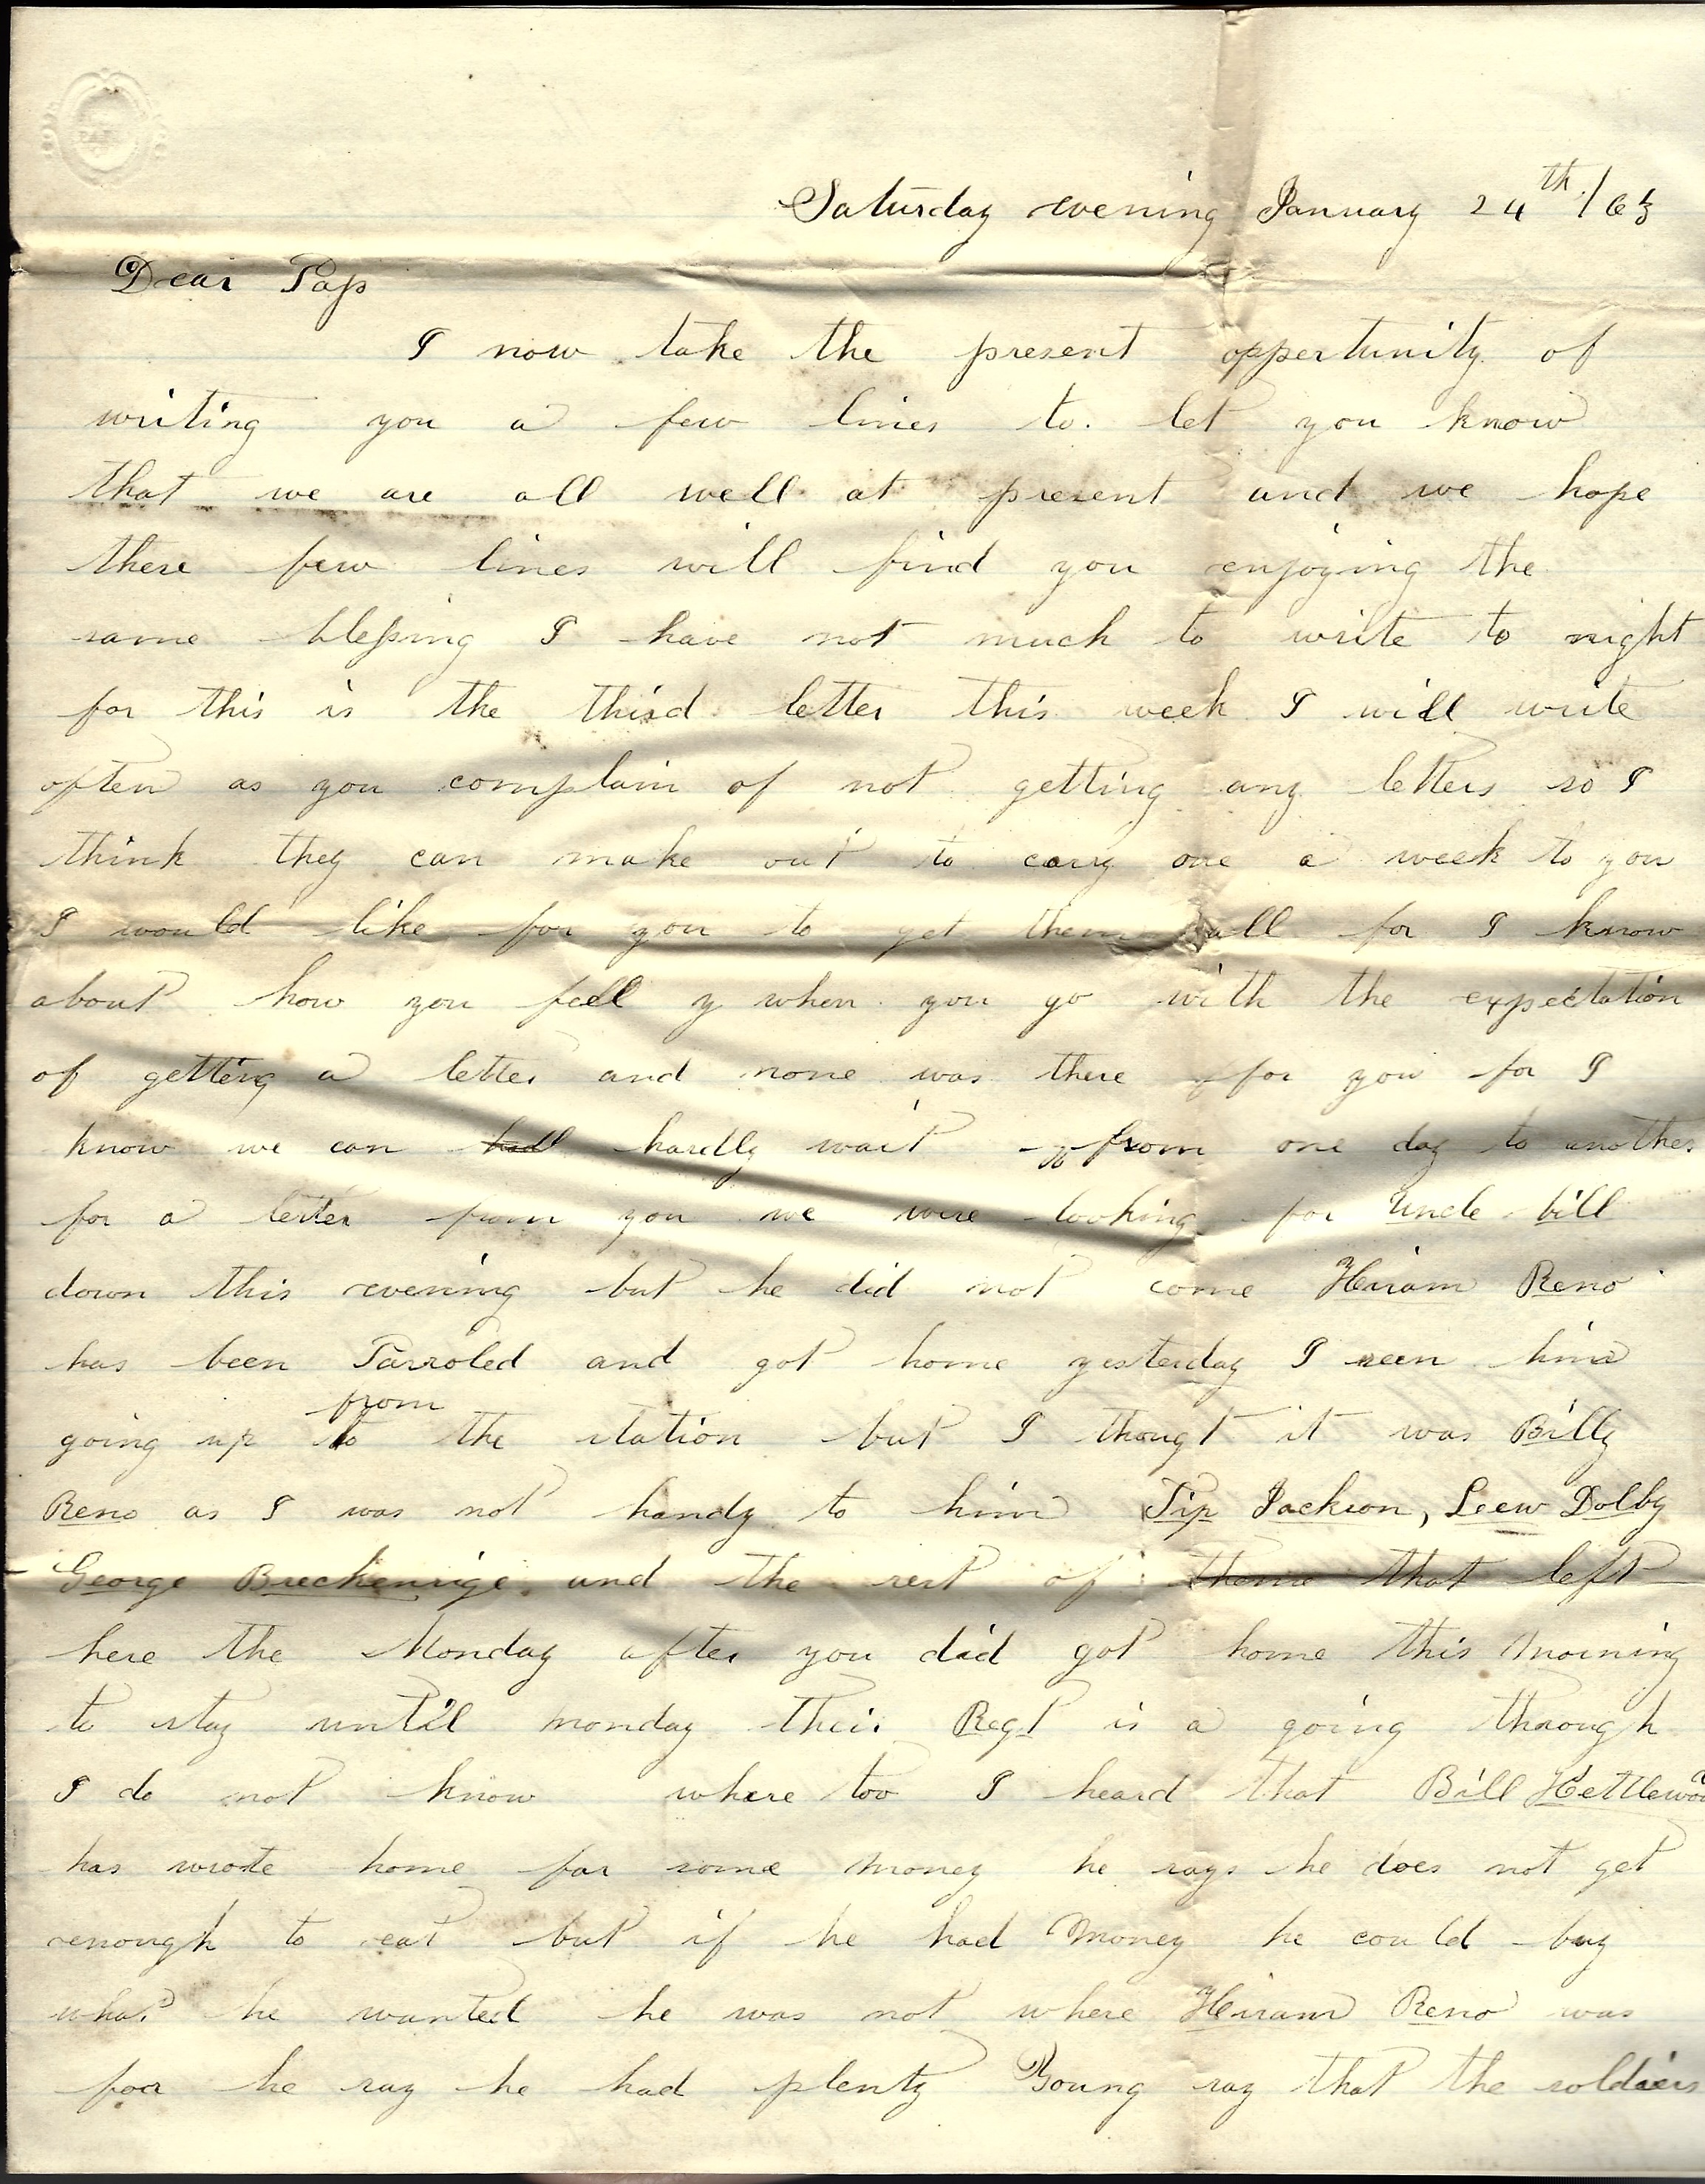 Saturday evening January 24th /63
Dear Pap
I now take the present oppertunity of
writing you a few lines to let you know
that we are all well at present and we hope
these few lines will find you enjoying the
same blessing I have not much to write to night
for this is the third letter this week I will write
often as you complain of not getting any letters so I
think they can make out to carry one a week to you
I would like for you to get them all for I know
about how you feel y when you go with the expectation
of getting a letter and none was there for you for I
know we can hardly wait from one day to another
for a letter from you we were looking for Uncle bill
down this evening but he did not come Hiram Reno
has been Parroled and got home yesterday I seen him
from
going up to the station but I thougt it was Billy
Reno as I was not handy to him Tip Jackson, Leew Dolby
George Breckenrige and the rest of them that left
here the Monday after you did got home this Morning
to stay until monday their Regt is a going through
I do not know where too I heard that Bill Kettlewood
has wrote home for some money he says he does not get
enough to eat but if he had Money he could buy
what he wanted he was not where Hiram Reno was
for he say he had plenty Young say that the soldiers